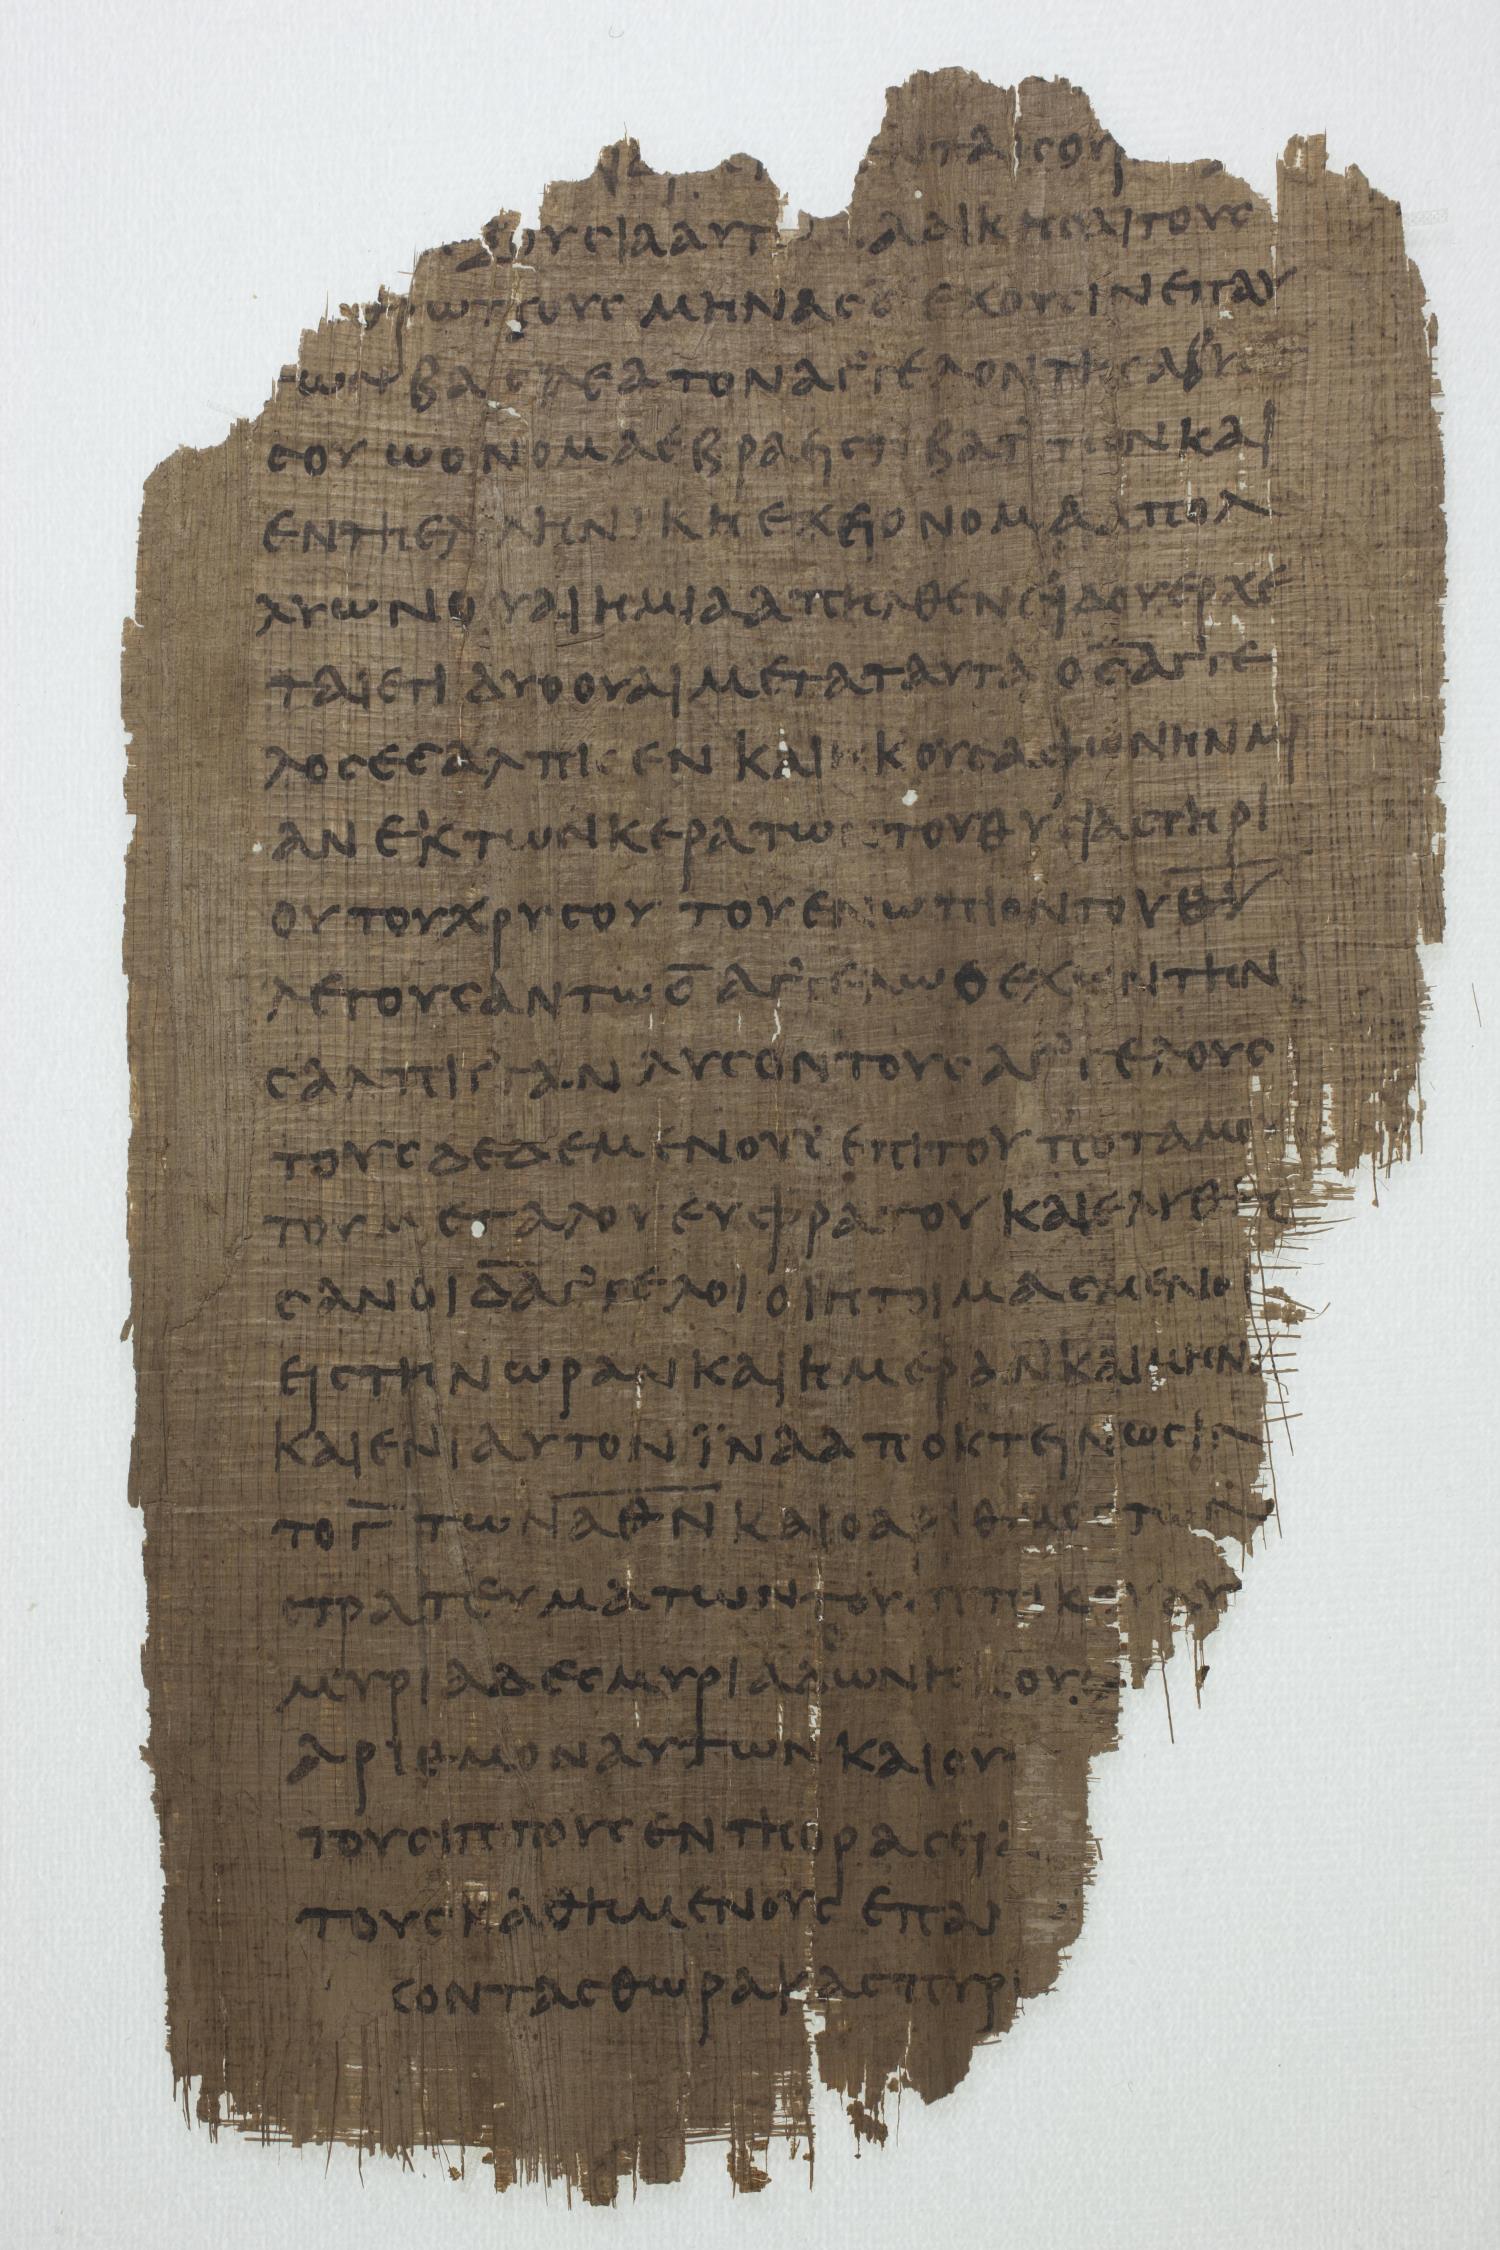 νταισου
ξουσιααυτ αδικησαιτους
ανρωπους μηνας ε̄ εχουσινεπαυ
τωνβασιλεατοναγ᾽γελοντηςαβυς
σουωονομαεβραειστιβατ᾽τωνκαι
εντηελληνικηεχειονομααπολ
λυωνουαιημιααπηλθενειδουερχε
ταιετιδυοουαιμεταταυτα ος̄αγ᾽γε
λοςεσαλπισενκαιηκουσαφωνηνμι
ανεκ᾽τωνκερατωντουθυσιαστηρι
ουτουχρυσουτουενωπιοντουθ̅υ̅
λεγουσαντως̄αγ᾽γελωοεχωντην
σαλπιγ᾽γανλυσοντουςαγ᾽γελους
τουςδεδεμενουςεπιτουποταμου
τουμεγαλουευφρατουκαιελυθη
σανοιδ̄αγ᾽γελοιοιητοιμασμενοι
ειςτηνωρανκαιημερανκαιμηνα
καιενιαυτονϊνααποκτεινωσιν
τογ̄τωνα̅θ̅ν̅καιοαριθμοςτων
στρατευματωντουιππικουαυ
μυριαδεςμυριαδωνηκουσα
αριθμοναυτωνκαιου
τουςιππουςεντηορασεια
τουςκαθημενουςεπαυ
σονταςθωρακαςπυρι